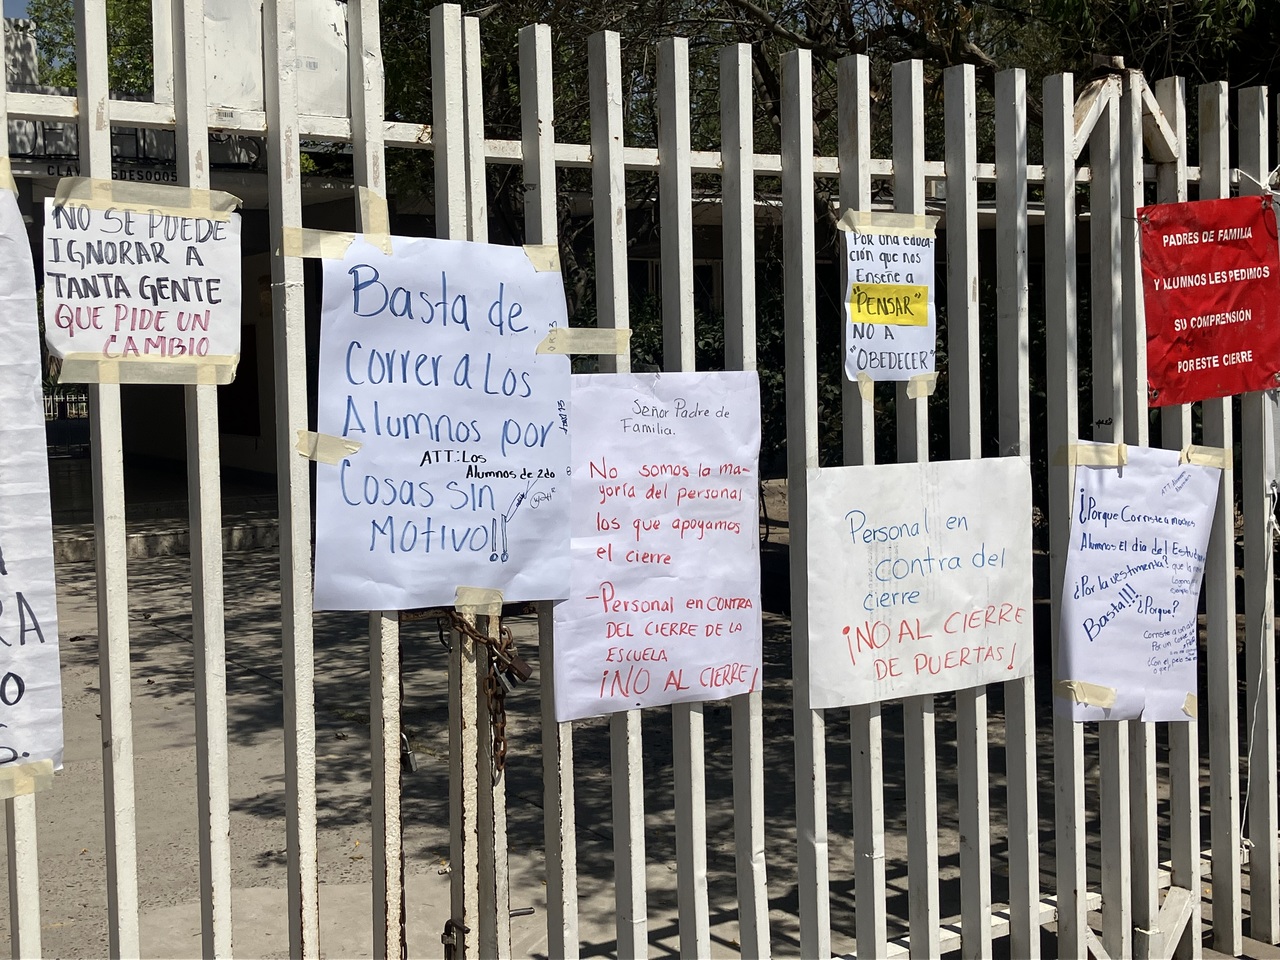 NO SE PUEDE
IGNORAR A
TANTA GENTE
QUE PIDE UN
CAMBIO
RA
O
S.
Basta de
Correr a Los
Alumnos por
ATT: Los
Alumnos de 2do
Cosas sin
Motivo!!
Señor Padre de
Familia.
No somos la ma-
yoria del personal
los que apoyamos
el cierre
-Personal en CONTRA
DEL CIERRE DE LA
ESCUELA
¡NO AL CIERRE!
Por una educa-
ción que nos
Enseñe a
"PENSAR"
NO A
"OBEDECER"
Personal en
contra del
cierre
¡NO AL CIERRE
DE PUERTAS!
PADRES DE FAMILIA
Y ALUMNOS LES PEDIMOS
SU COMPRENSIÓN
POR ESTE CIERRE
¿Porque Corriste a muchos
Alumnos El dia del
¿Por la vestimenta?
Basta!!!
¿Porque?